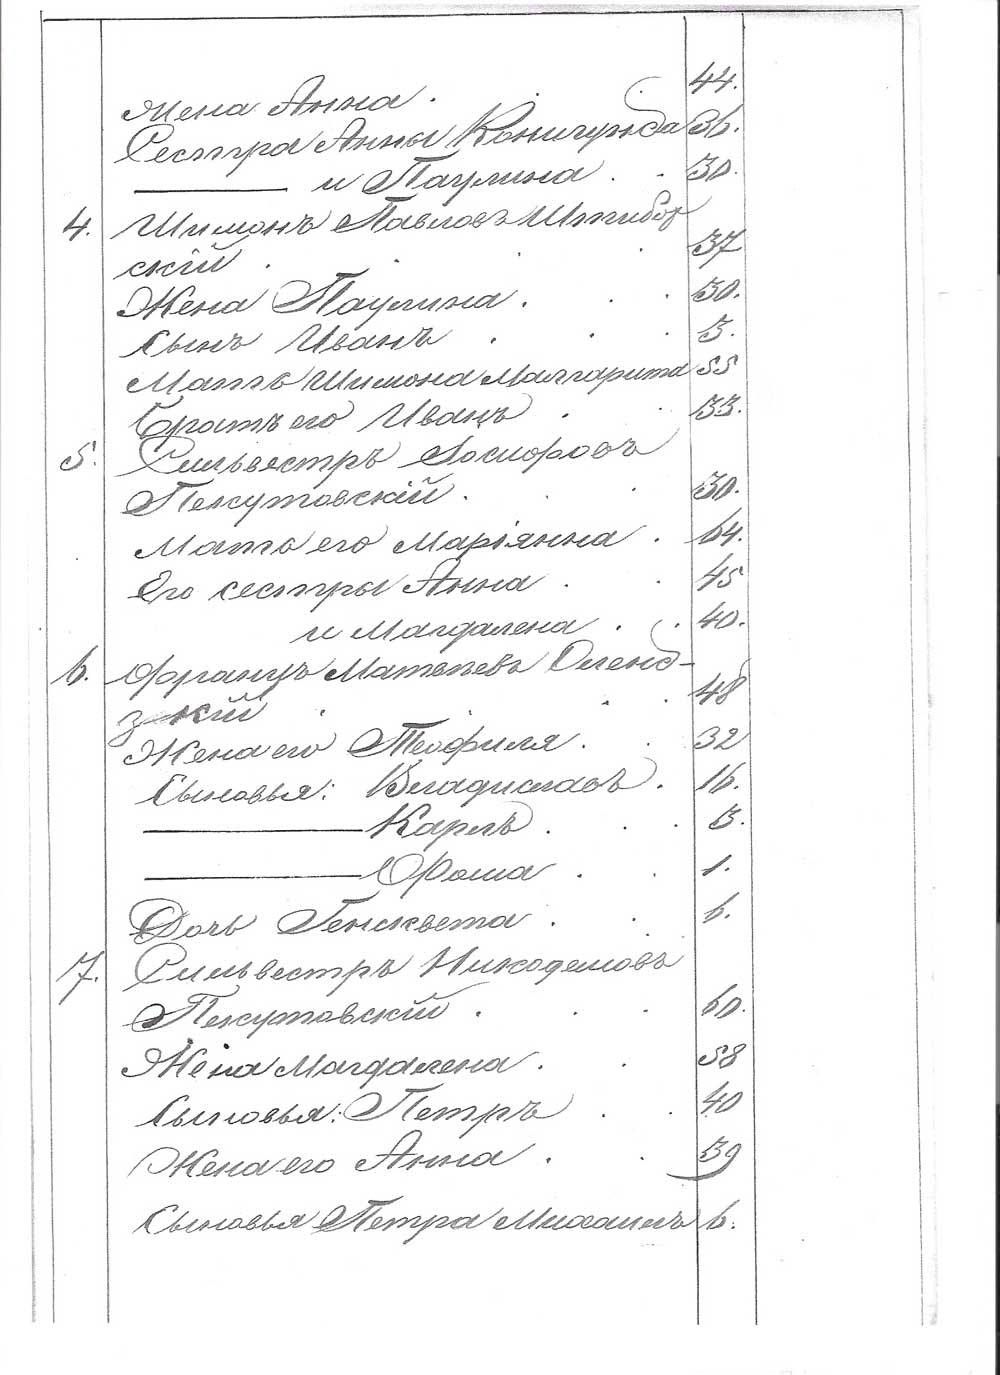 Жена Анна . . . 44.
Сестра Анны Конигунда 36.
——— и Паулина . . 30.
4. Шимонъ Павловъ Штибор
скій . . . . 37
Жена Паулина . . . 30.
Сынъ Иванъ . . . 3.
Мать Шимона Малгарита 55
Братъ его Иванъ . . 33.
5. Сильвестръ Іосифовъ
Пекутовскій . . . 30.
Мать его Маріянна . 64.
Его сестры Анна . . 45
и Магдалена . . 40.
6. Францъ Матвѣевъ Оленд-
зкій . . . . 48
Жена его Теофиля . . 32
Сыновья: Владиславъ . 16.
——— Карлъ . . . 3.
——— Фома . . 1.
Дочь Генсквета . . 6.
7. Сильвестръ Никодемовъ
Пекутовскій . . . 60.
Жена Магдалена . . 58
Сыновья: Петръ . . 40
Жена его Анна . . 39
Сыновья Петра Михаилъ 6.